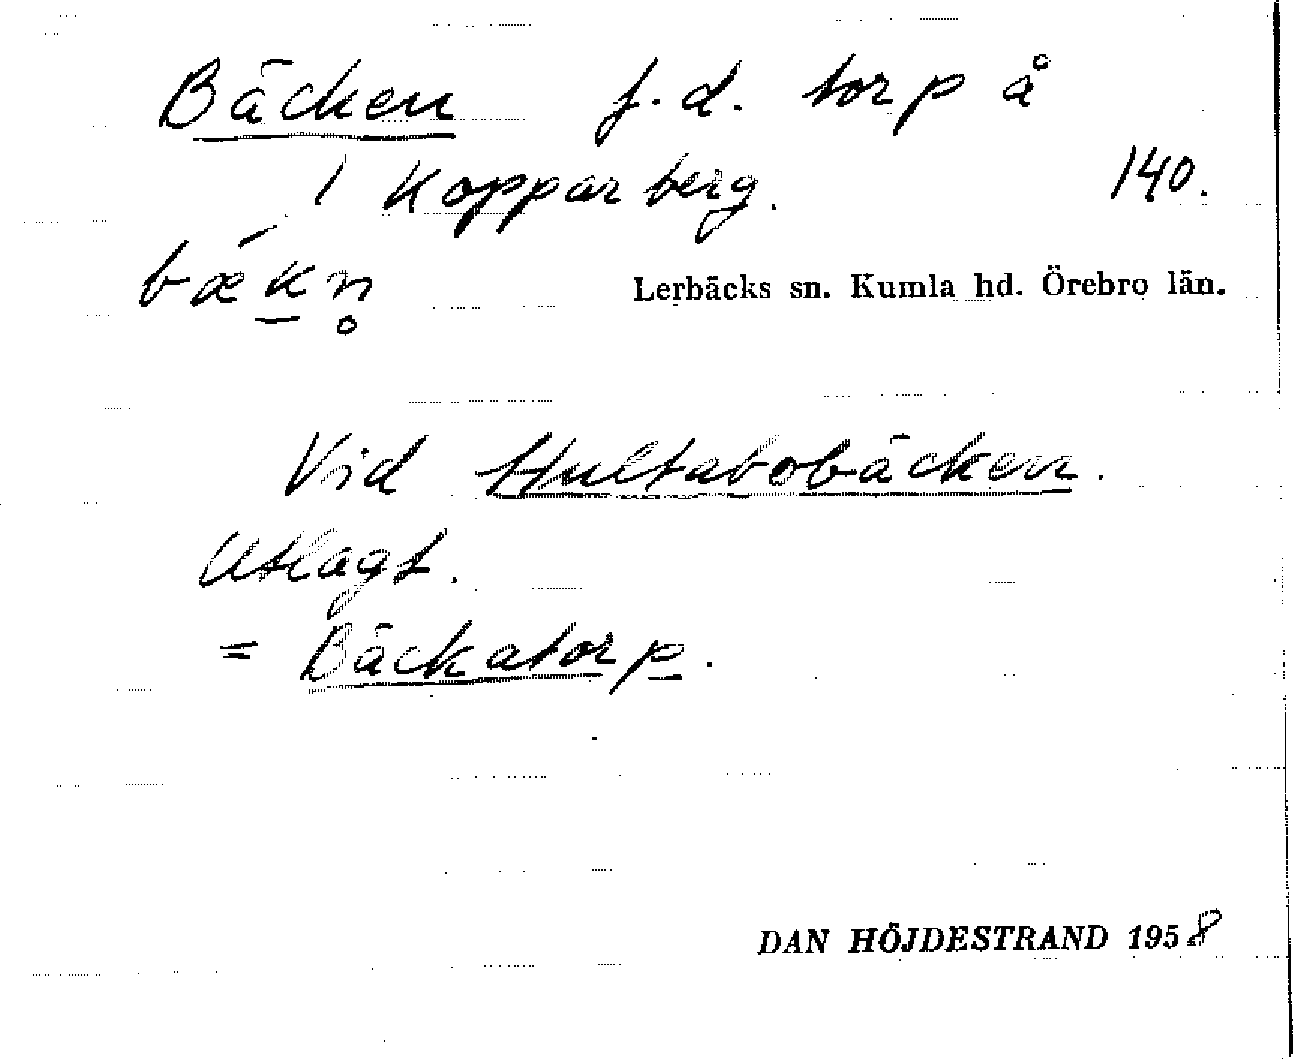 Bäcken f.d. torp å
1 Kopparberg. 140.
bǽkn̥
Lerbäcks sn. Kumla hd. Örebro län.
Vid Hultabobäcken.
Utlagt.
= Bäckatorp.
DAN HÖJDESTRAND 1958